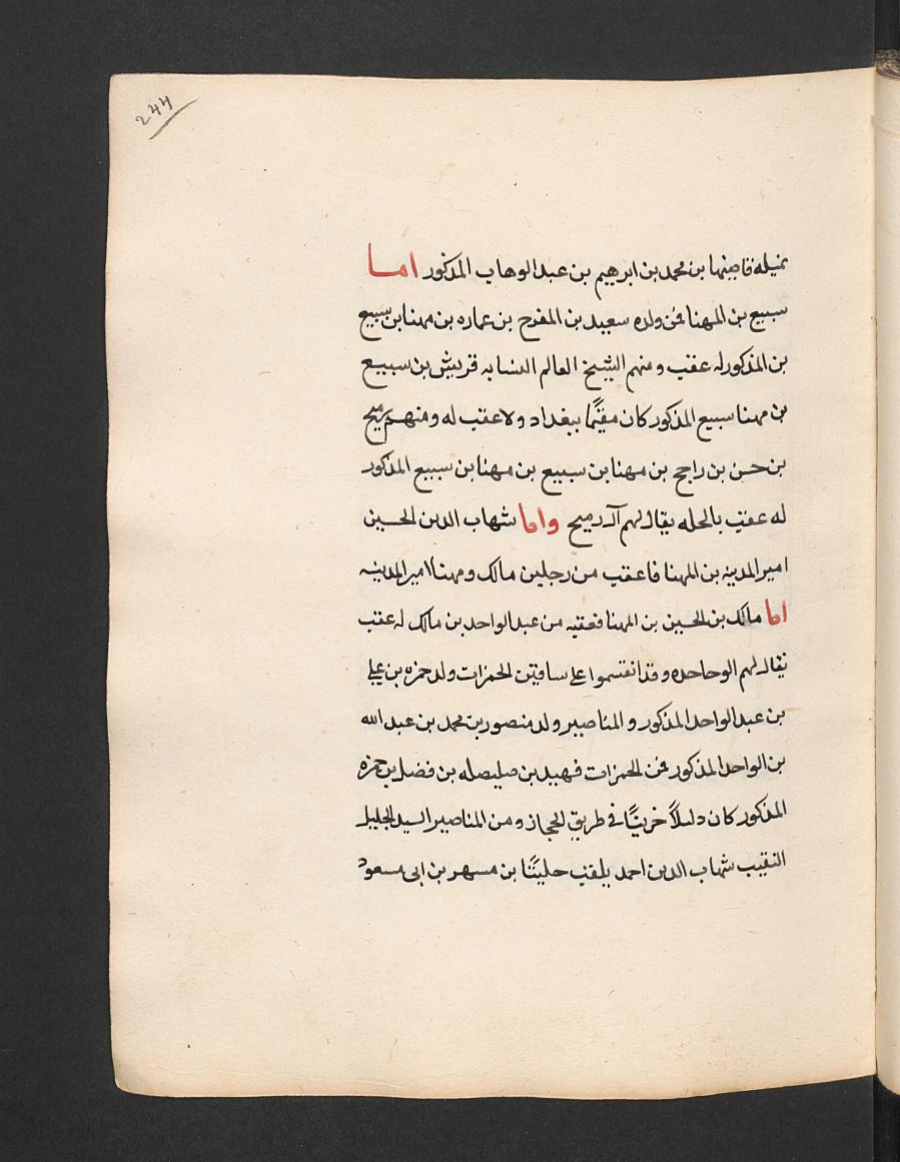 244
نميله قاضيها بن محمد بن ابرهيم بن عبد الوهاب المذكور اما
سبيع بن المهنا فمن ولده سعيد بن المفرح بن عماره بن مهنا بن سبيع
بن المذكور له عقب و منهم الشيخ العالم النسابه قريش بن سبيع
بن مهنا سبيع المذكور كان مقيمًا ببغداد ولا عقب له ومنهم رميح
بن حسن بن راجح بن مهنا بن سبيع بن مهنا بن سبيع المذكور
له عقب بالحله يقال لهم آل رميح واما شهاب الدين الحسين
امير المدينه بن المهنا فاعقب من رجلين مالك ومهنا امير المدينه
اما مالك بن الحسين بن المهنا فعقبه من عبد الواحد بن مالك له عقب
يقال لهم الوحاحده وقد انقسموا على ساقين الحمزات ولد حمزه بن علي
بن عبد الواحد المذكور و المناصير ولد منصور بن محمد بن عبد الله
بن الواحد المذكور فمن الحمزات فهيد بن صليصله بن فضل بن حمزه
المذكور كان دليلاً خريتًا في طريق الحجاز ومن المناصير السيد الجليل
النقيب شهاب الدين احمد يلقب حليتًا بن مسهر بن ابى مسعود